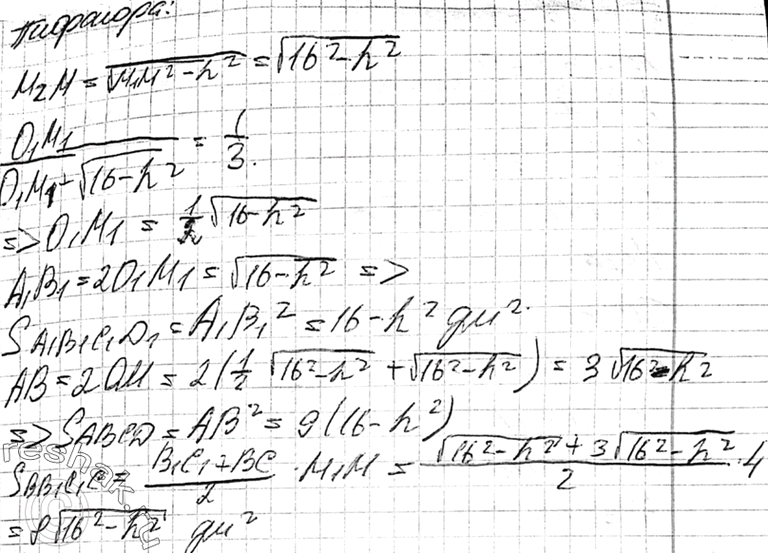 Пифагора:
M₂M = √(M₁M² - h²) = √(16² - h²)
O₁M₁ / (O₁M₁ + √(16 - h²)) = 1/3.
=> O₁M₁ = 1/2 √(16 - h²)
A₁B₁ = 2O₁M₁ = √(16 - h²) =>
S A₁B₁C₁D₁ = A₁B₁² = 16 - h² дм².
AB = 2OM = 2(1/2 √(16² - h²) + √(16² - h²)) = 3√(16² - h²)
=> S ABCD = AB² = 9(16 - h²)
S BB₁C₁C = (B₁C₁ + BC)/2 · M₁M = (√(16² - h²) + 3√(16² - h²))/2 · 4
= 8√(16² - h²) дм²
reshak.ru